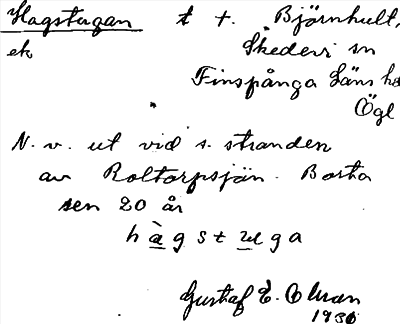 Hagstugan t t. Björnhult,
ek Skedevi sn
Finspånga Läns hd
Ögl
N. v. ut vid s. stranden
av Roltorpsjön. Borta
sen 20 år
hàgstuga
Gustaf E.
1930